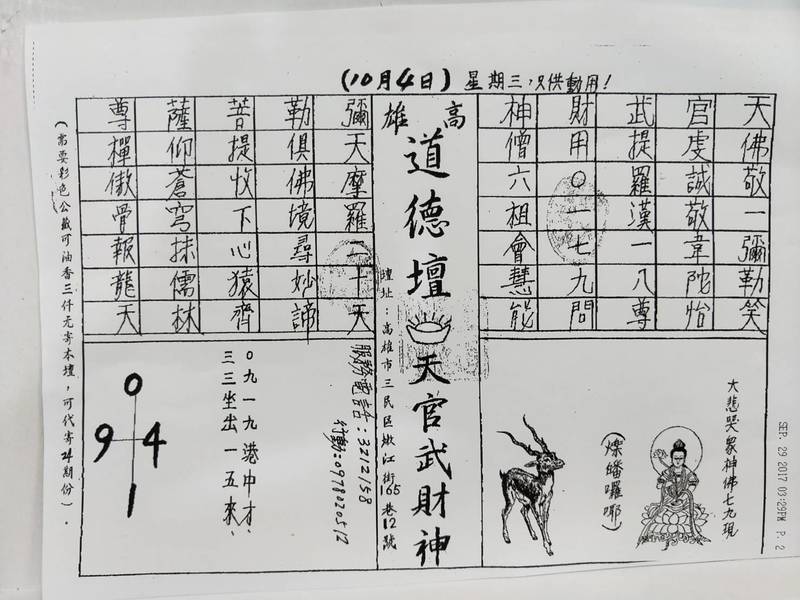 (10月4日)星期三,只供動用!
天官武財神
佛虔提用僧
敬誠羅〇六
一敬漢一祖
彌韋一七會
勒陀八九慧
笑怡尊問能
大悲哭眾神佛七九現
(燦皤囉哪)
高雄
道德壇
天官武財神
壇址:高雄市三民區嫩江街165巷12號
彌勒菩薩尊
天俱提仰樿
摩佛收蒼傲
羅境下穹骨
二尋心抹報
十妙猿儒龍
天諦齊林天
服務電話:3212158
行動:0978020512
〇九一九港中才、
三三坐出一五來、
0
9 4
1
(需要彩色公戴可油香三仟元寄本壇,可代寄24期份).
SEP. 29 2017 03:29PM P. 2